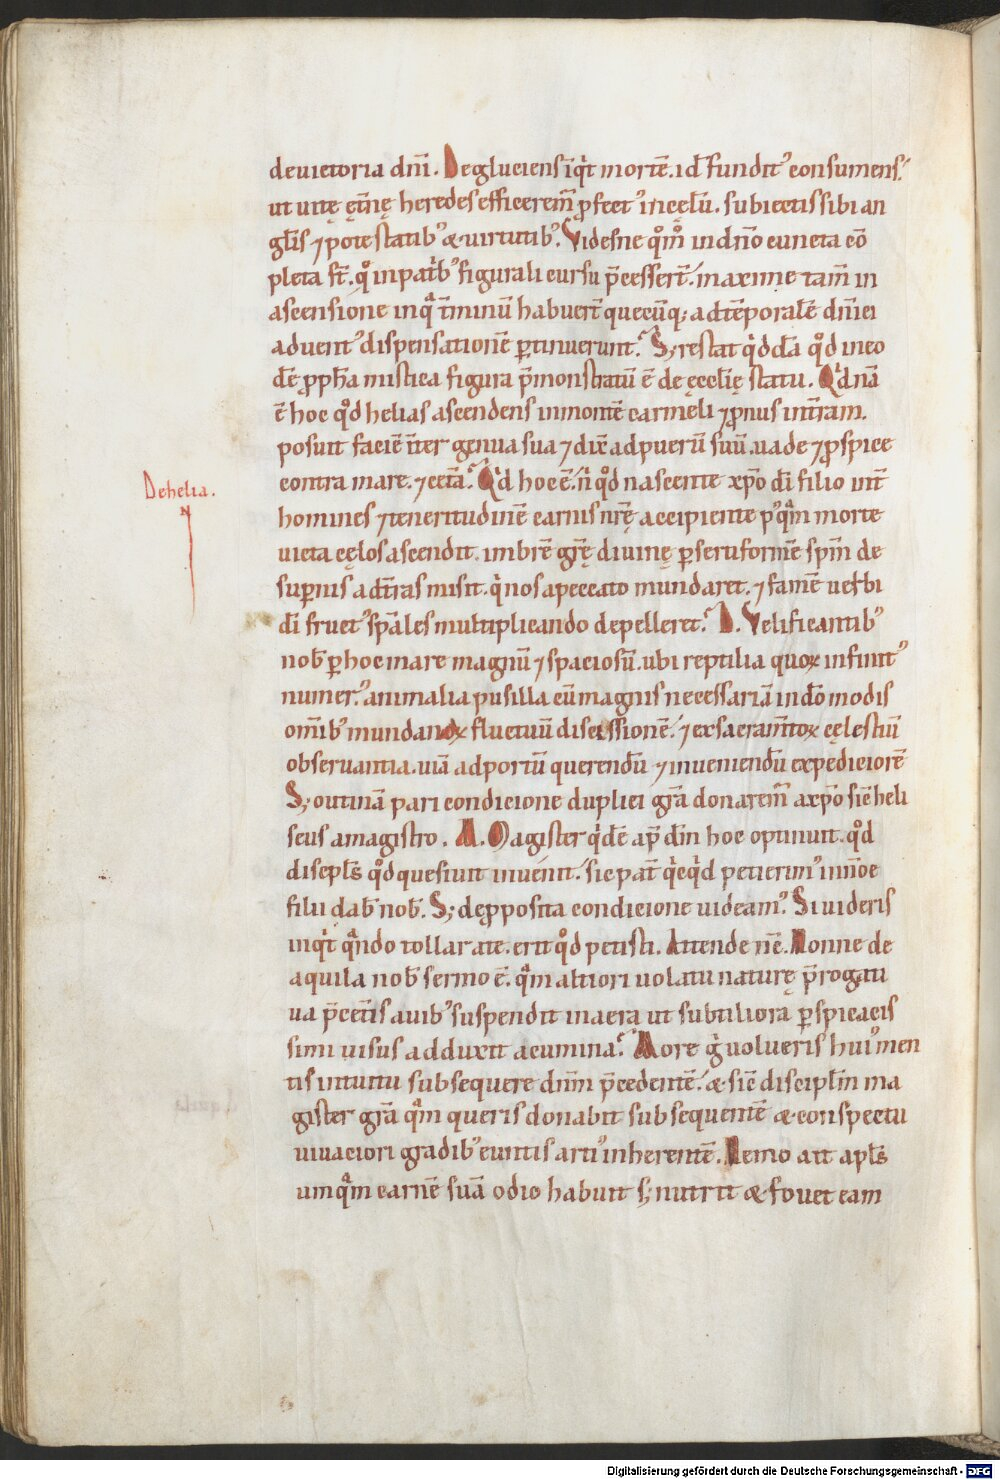 deuictoria dnī. Deglutiens īqt mortē. id ē fundit᾽ consumens.
ut uitę ętnę heredes efficerem̄ ꝓfect᾽ in cęlū. subiectis sibi an
glis ⁊ potestatib᾽ & uirtutib᾽. Videsne qͦm̄ in dn̄o cuncta cō
pleta st̄. qͦ in patb᾽ figurali cursu p̄cesserт̄. maxime tam̄ in
ascensione in qͣ t̄minū habuer̄t quecūq; ad tēporalē dn̄ici
aduent᾽ dispensationē ꝑtinuerunt. S; restat qͥddā qͦd in eo
dē ꝓpħa mistica figura p̄monstratū ē de ęcclīę statu. Qͥdnā
ē hoc qͦd helias ascendens in montē carmeli ⁊ ꝓnus in t̄ram.
posuit faciē īter genua sua ⁊ dix̄ ad puerū suū. uade ⁊ ꝓspice
contra mare. ⁊ cetā. Qͥd hoc ē. n̄ qͦd nascente xp̄o dī filio int̄
homines ⁊ teneritudinē carnis nr̄ę accipiente p᾽qͣm morte
uicta cęlos ascendit. imbrē gr̄ę diuinę ꝑ septiformē spm̄ de
suꝑnis ad t̄ras misit. qͥ nos a peccato mundaret. ⁊ famē uerbi
dī fruct᾽ sp̄ales multiplicando depelleret. D. Velificantib᾽
nob̄ ꝑ hoc mare magnū ⁊ spaciosū. ubi reptilia quoꝝ infinit᾽
numer᾽. animalia pusilla cū magnis necessariā in dō modis
om̄ib᾽ mundanoꝝ fluctuū discussionē. ⁊ ex sacram̄toꝝ cęlestiū
obseruantia. uiā ad portū querendū ⁊ inueniendū expediciorē
S; o utinā pari condicione duplici gr̄a donarem̄ a xp̄o sic̄ heli
seus a magistro. M. Magister qͥdē ap̄ dm̄ hoc optinuit. qͦd
discipl̄s qͦd quesiuit inuenit. sic pat̄ qͥcqͥd petierim᾽ in noe
filii dab̄ nob̄. S; de ꝓposita condicione uideam᾽. Si uideris
inqͥt qͣndo tollar a te. erit qͦd petisti. Attende nē. Nonne de
aquila nob̄ sermo ē. qͣm altiori uolatu naturę p̄rogati
ua p̄cet̄is auib᾽ suspendit in aera ut subtiliora ꝑspicacis
simi uisus adduxit acumina. More g᾽ uolucris hui᾽ men
tis intuitu subsequere dnm̄ p̄cedentē. & sic̄ disciplm̄ ma
gister gr̄a qͣm queris donabit subsequentē & conspectu
uiuaciori gradib᾽ euntis arti᾽ inherentē. Nemo ait apl̄s
umqͣm carnē suā odio habuit s; nutrit & fouet eam
Dehelia.
Digitalisierung gefördert durch die Deutsche Forschungsgemeinschaft - DFG